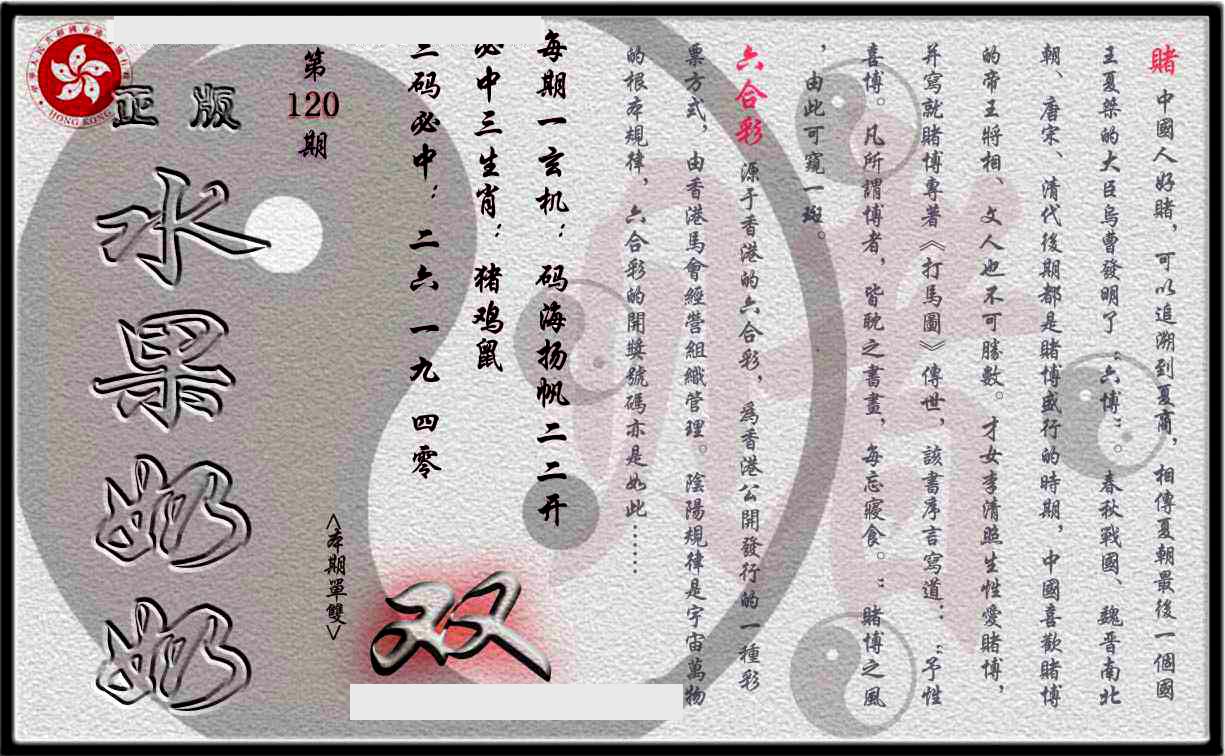 賭 中國人好賭，可以追溯到夏商，相傳夏朝最後一個國
王夏桀的大臣烏曹發明了“六博”。春秋戰國、魏晋南北
朝、唐宋、清代後期都是賭博盛行的時期，中國喜歡賭博
的帝王將相、文人也不可勝數。才女李清照生性愛賭博，
并寫就賭博專著《打馬圖》傳世，該書序言寫道：“予性
喜博。凡所謂博者，皆耽之晝夜，每忘寢食。”賭博之風
，由此可窺一斑。
六合彩 源于香港的六合彩，為香港公開發行的一種彩
票方式，由香港馬會經營組織管理。陰陽規律是宇宙萬物
的根本規律，六合彩的開獎號碼亦是如此……
每期一玄机：码海扬帆二二开
必中三生肖：猪鸡鼠
三码必中：二六 一九 四零
第
120
期
<本期單雙>
双
正版
水果奶奶
HONG KONG